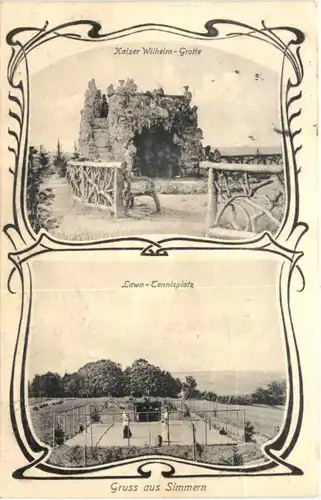 Kaiser Wilhelm-Grotte
Lawn-Tennisplatz
Gruss aus Simmern